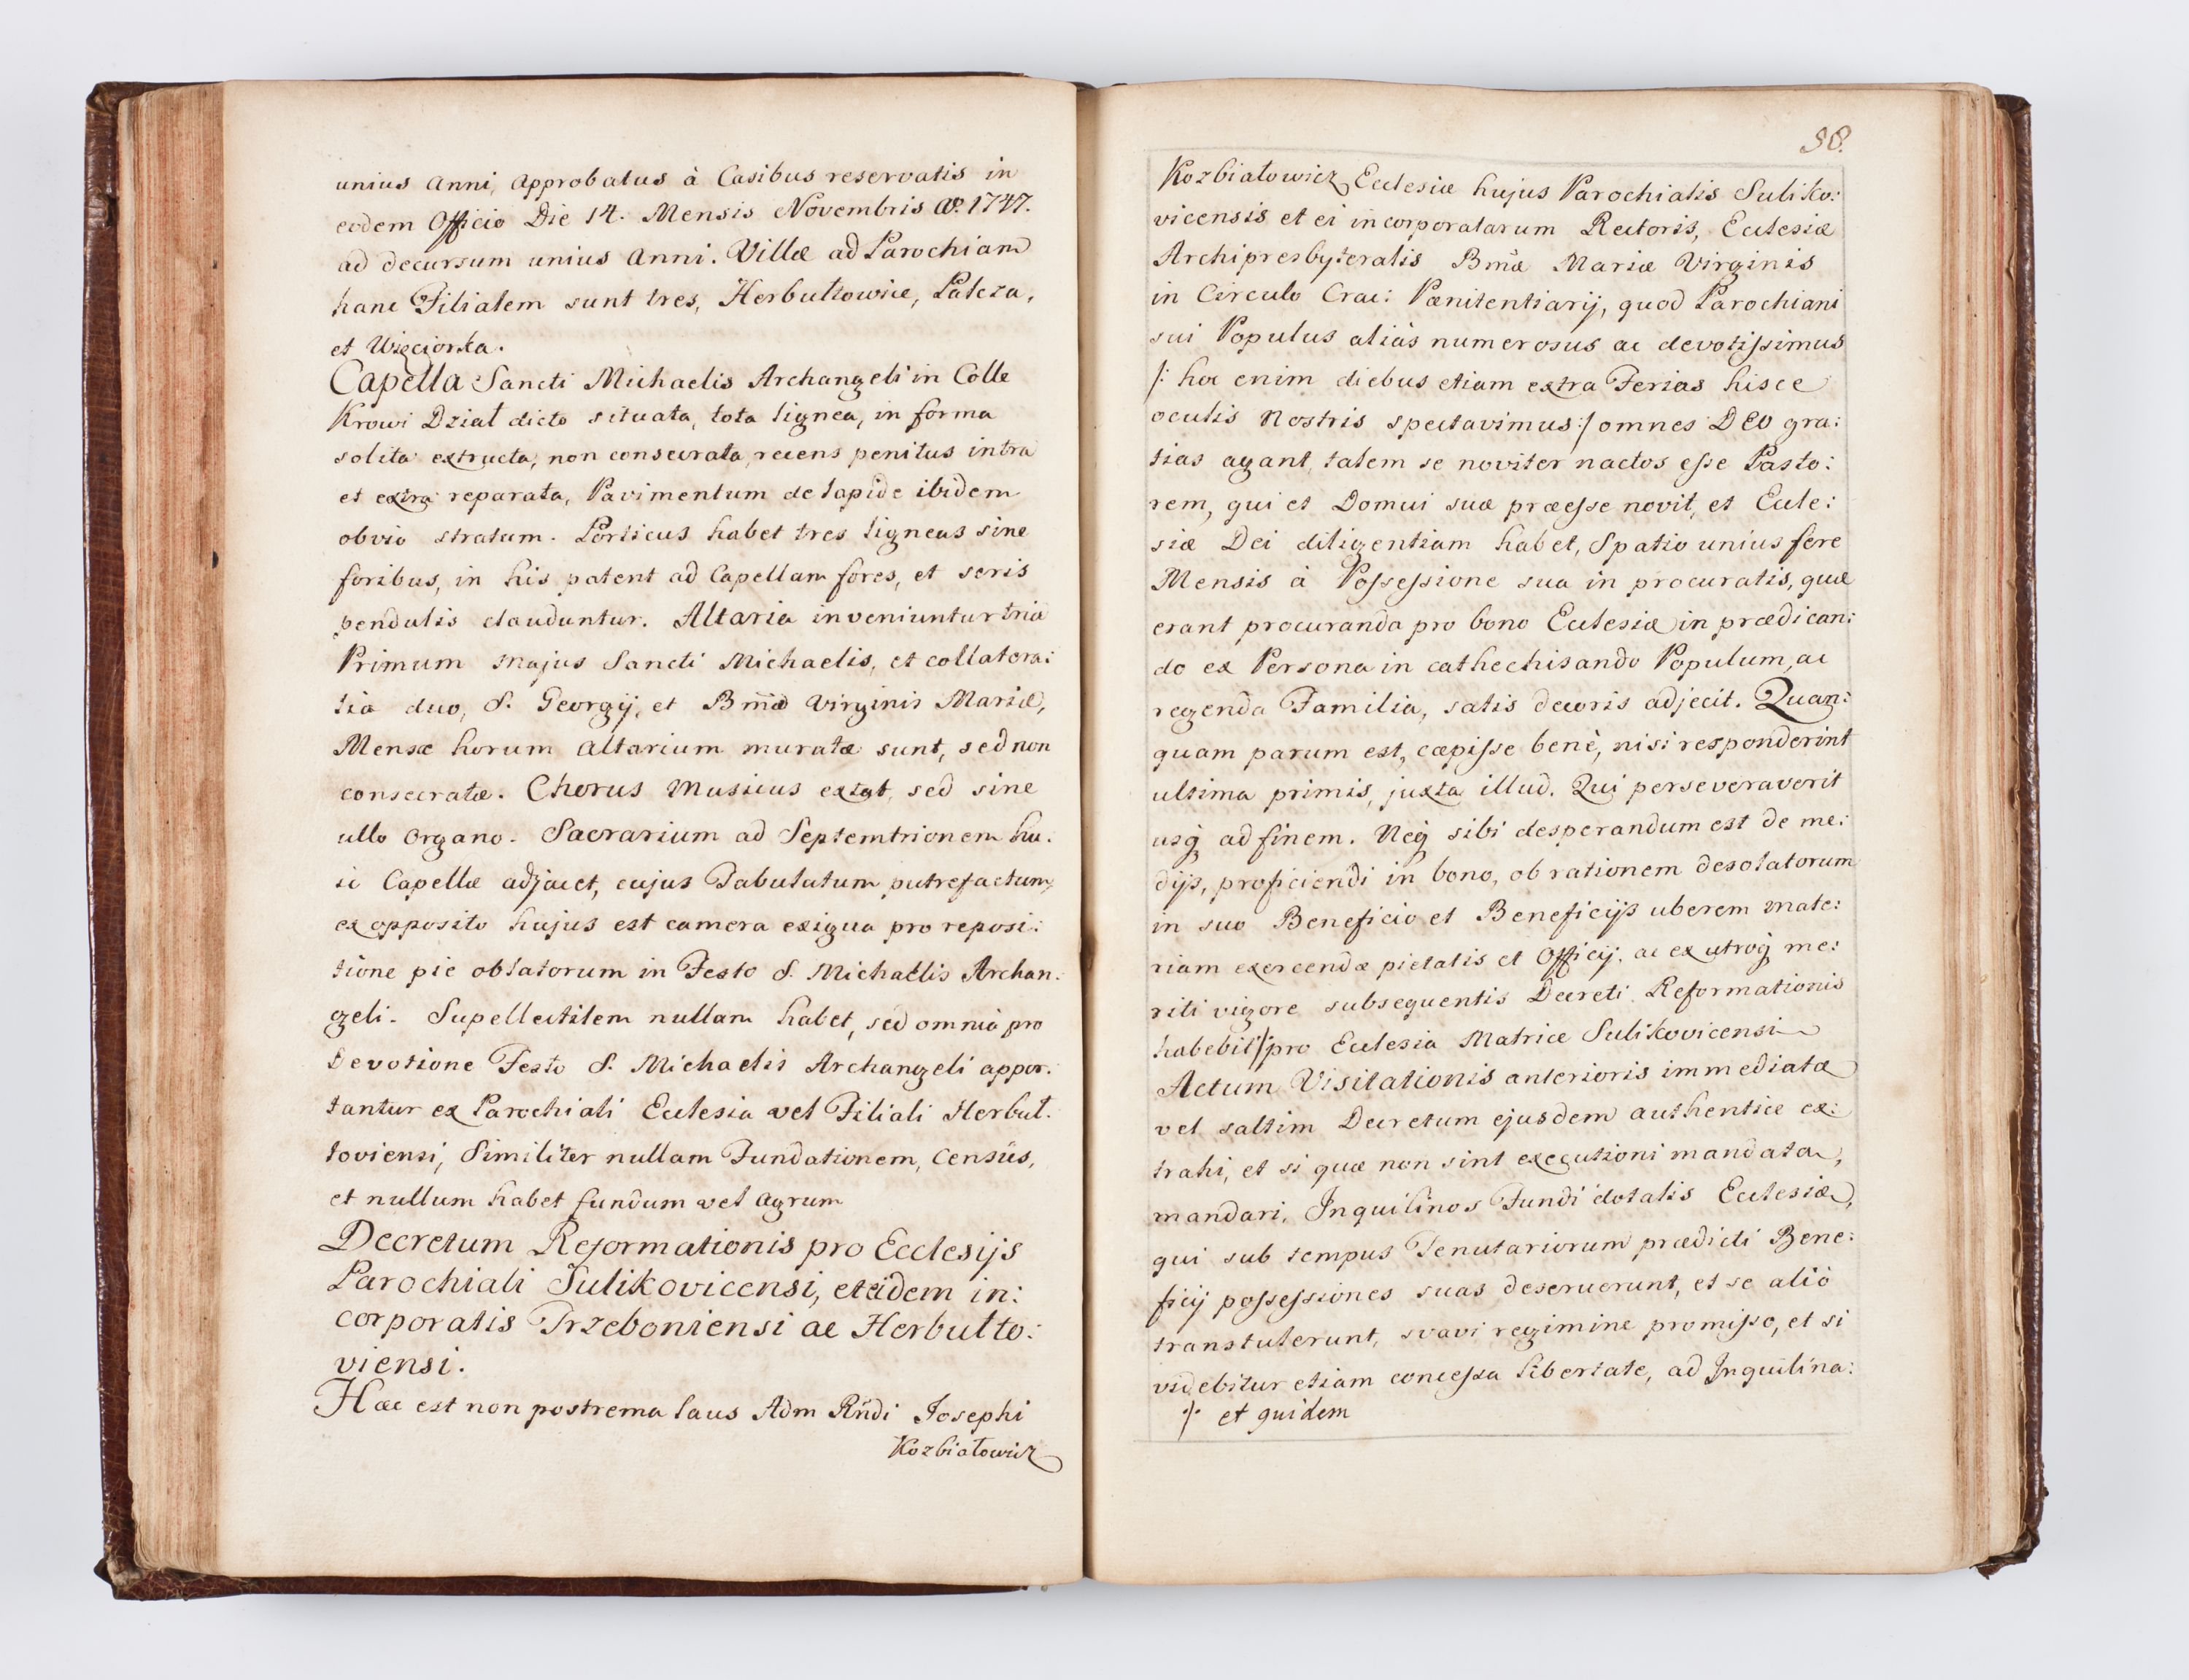 unius anni, approbatus à Casibus reservatis in
eodem Officio Die 14. Mensis Novembris Aọ. 1747.
ad decursum unius anni. Villæ ad Parochiam
hanc Filialem sunt tres, Herbułtowice, Palcza,
et Więciorka.
Capella Sancti Michaelis Archangeli in Colle
Krowi Dział dicto situata, tota lignea, in forma
solita extructa, non consecrata, recens penitus intra
et extra reparata, Pavimentum de lapide ibidem
obvio stratum. Porticus habet tres ligneas sine
foribus, in his patent ad Capellam fores, et seris
pendulis clauduntur. Altaria inveniuntur tria
Primum majus Sancti Michaelis, et collatera:
lia duo, S. Georgij, et Bmæ Virginis Mariæ,
Mensæ horum altarium muratæ sunt, sed non
consecratæ. Chorus Musicus extat, sed sine
ullo organo. Sacrarium ad Septemtrionem hu:
ic Capellæ adjacet, cujus Tabulatum putrefactum,
ex opposito hujus est camera exigua pro reposi:
tione pie oblatorum in Festo S. Michaelis Archan:
geli. Supellectilem nullam habet, sed omnia pro
Devotione Festo S. Michaelis Archangeli appor:
tantur ex Parochiali Ecclesia vel Filiali Herbuł:
toviensi, Similiter nullam Fundationem, Censûs,
et nullum habet fundum vel agrum
Decretum Reformationis pro Ecclesijs
Parochiali Sulikovicensi, et eidem in:
corporatis Trzeboniensi ac Herbułto:
viensi.
Hæc est non postrema laus Adm Rndi Josephi
Kozbiałowicz
98.
Kozbiałowicz Ecclesiæ hujus Parochialis Suliko:
vicensis et ei incorporatarum Rectoris, Ecclesiæ
Archipresbyteralis Bmæ Mariæ Virginis
in Circulo Crac: Pœnitentiarij, quod Parochiani
sui Populus aliàs numerosus ac devotissimus
/: hoc enim diebus etiam extra Ferias hisce
oculis Nostris spectavimus :/ omnes DEO gra:
tias agant, talem se noviter nactos esse Pasto:
rem, qui et Domui suæ præesse novit, et Eccle:
siæ Dei diligentiam habet, Spatio unius fere
Mensis à Possessione sua in procuratis, quæ
erant procuranda pro bono Ecclesiæ in prædican:
do ex Persona in cathechisando Populum, ac
regenda Familia, satis decoris adjecit. Quan:
quam parum est, cœpisse benè, nisi responderint
ultima primis, juxta illud. Qui perseveraverit
usq̓ ad finem. Neq̓ sibi desperandum est de me:
dijs, proficiendi in bono, ob rationem desolatorum
in suo Beneficio et Beneficijs uberem mate:
riam exercendæ pietatis et Officij. ac ex utroq̓ me:
riti vigore subsequentis Decreti Reformationis
habebit ⁒ pro Ecclesia Matrice Sulikovicensi
Actum Visitationis anterioris immediatæ
vel saltim Decretum ejusdem authentice ex:
trahi, et si quæ non sint executioni mandata,
mandari. Inquilinos Fundi dotalis Ecclesiæ,
qui sub tempus Tenutariorum prædicti Bene:
ficij possessiones suas deseruerunt, et se aliò
transtulerunt, svavi regimine promisso, et si
videbitur etiam concessa libertate, ad Inquilina:
⁒ et quidem